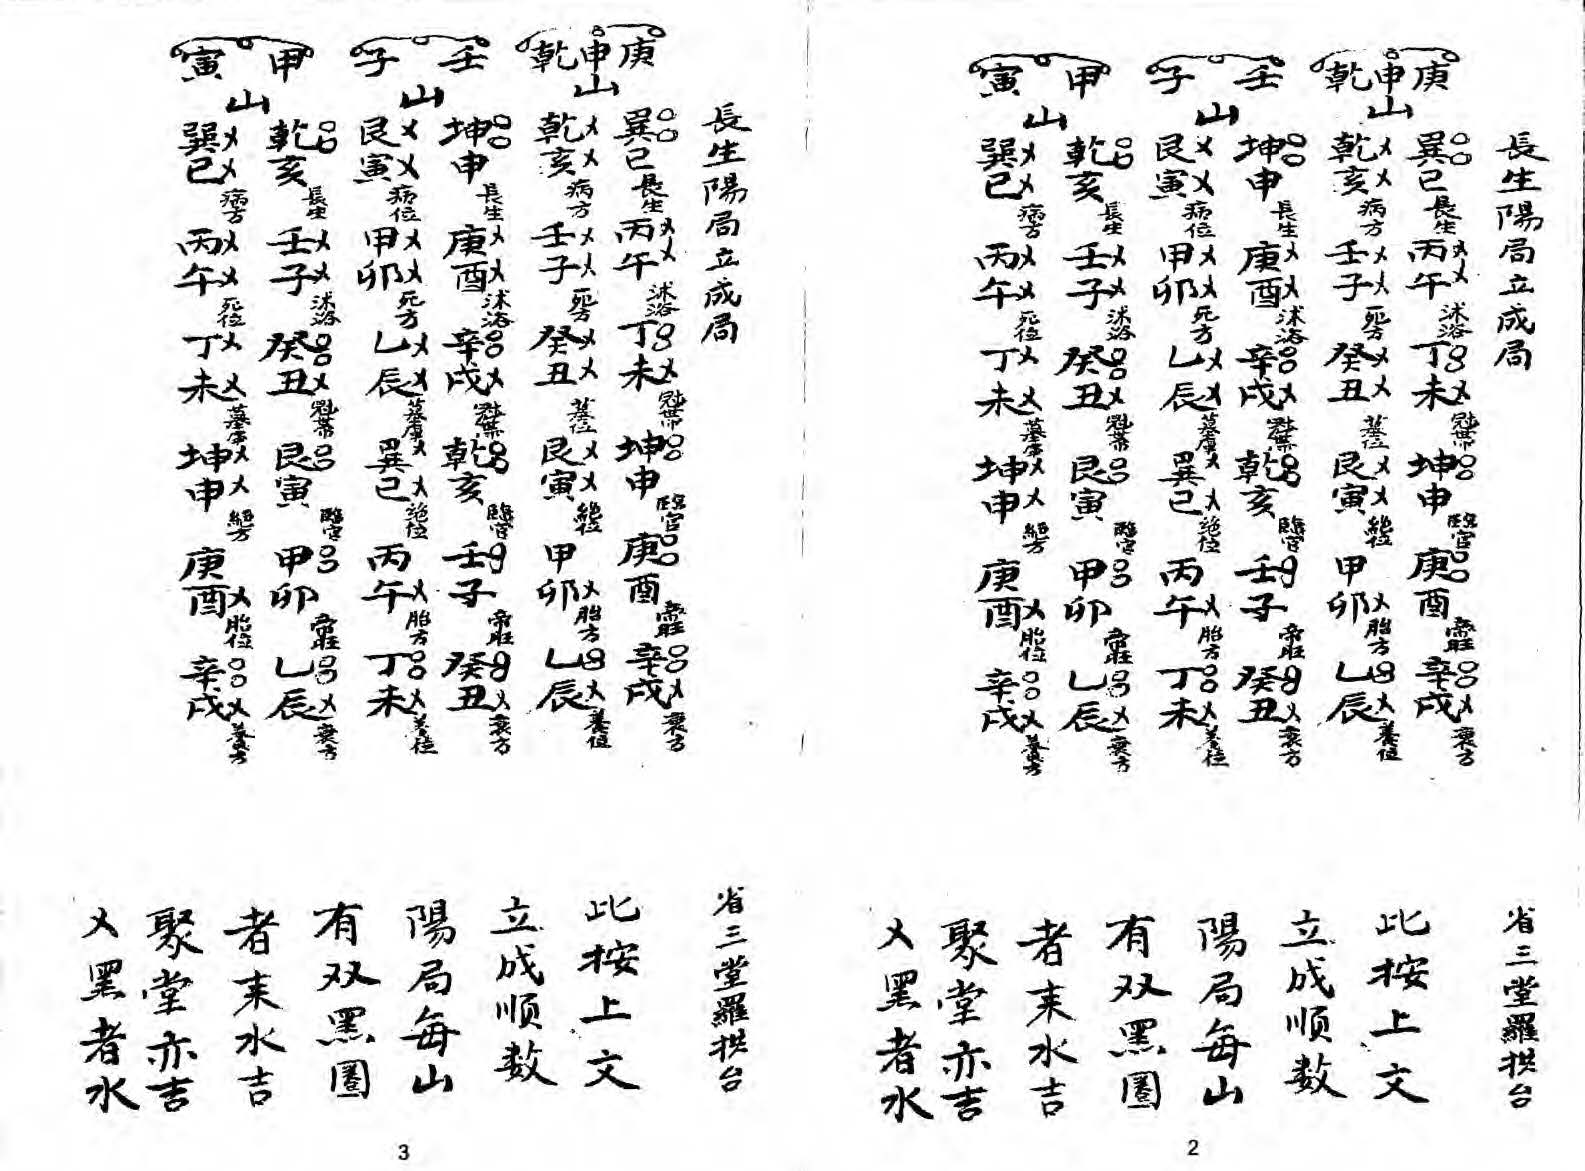 長生陽局立成局
庚申乾山
巽巳長生丙午沐浴丁未冠帶坤申臨官庚酉帝旺辛戌衰方
乾亥病方壬子死方癸丑墓位艮寅絕位甲卯胎方乙辰養位
壬子山
坤申長生庚酉沐浴辛戌冠帶乾亥臨官壬子帝旺癸丑衰方
艮寅病位甲卯死方乙辰墓庫巽巳絕位丙午胎方丁未養位
甲寅山
乾亥長生壬子沐浴癸丑冠帶艮寅臨官甲卯帝旺乙辰衰方
巽巳病方丙午死位丁未墓庫坤申絕方庚酉胎位辛戌養方
省三堂羅拱台
此按上文
立成順数
陽局每山
有双黑圈
者来水吉
聚堂亦吉
乂黑者水
2
長生陽局立成局
庚申乾山
巽巳長生丙午沐浴丁未冠帶坤申臨官庚酉帝旺辛戌衰方
乾亥病方壬子死方癸丑墓位艮寅絕位甲卯胎方乙辰養位
壬子山
坤申長生庚酉沐浴辛戌冠帶乾亥臨官壬子帝旺癸丑衰方
艮寅病位甲卯死方乙辰墓庫巽巳絕位丙午胎方丁未養位
甲寅山
乾亥長生壬子沐浴癸丑冠帶艮寅臨官甲卯帝旺乙辰衰方
巽巳病方丙午死位丁未墓庫坤申絕方庚酉胎位辛戌養方
省三堂羅拱台
此按上文
立成順数
陽局每山
有双黑圈
者来水吉
聚堂亦吉
乂黑者水
3